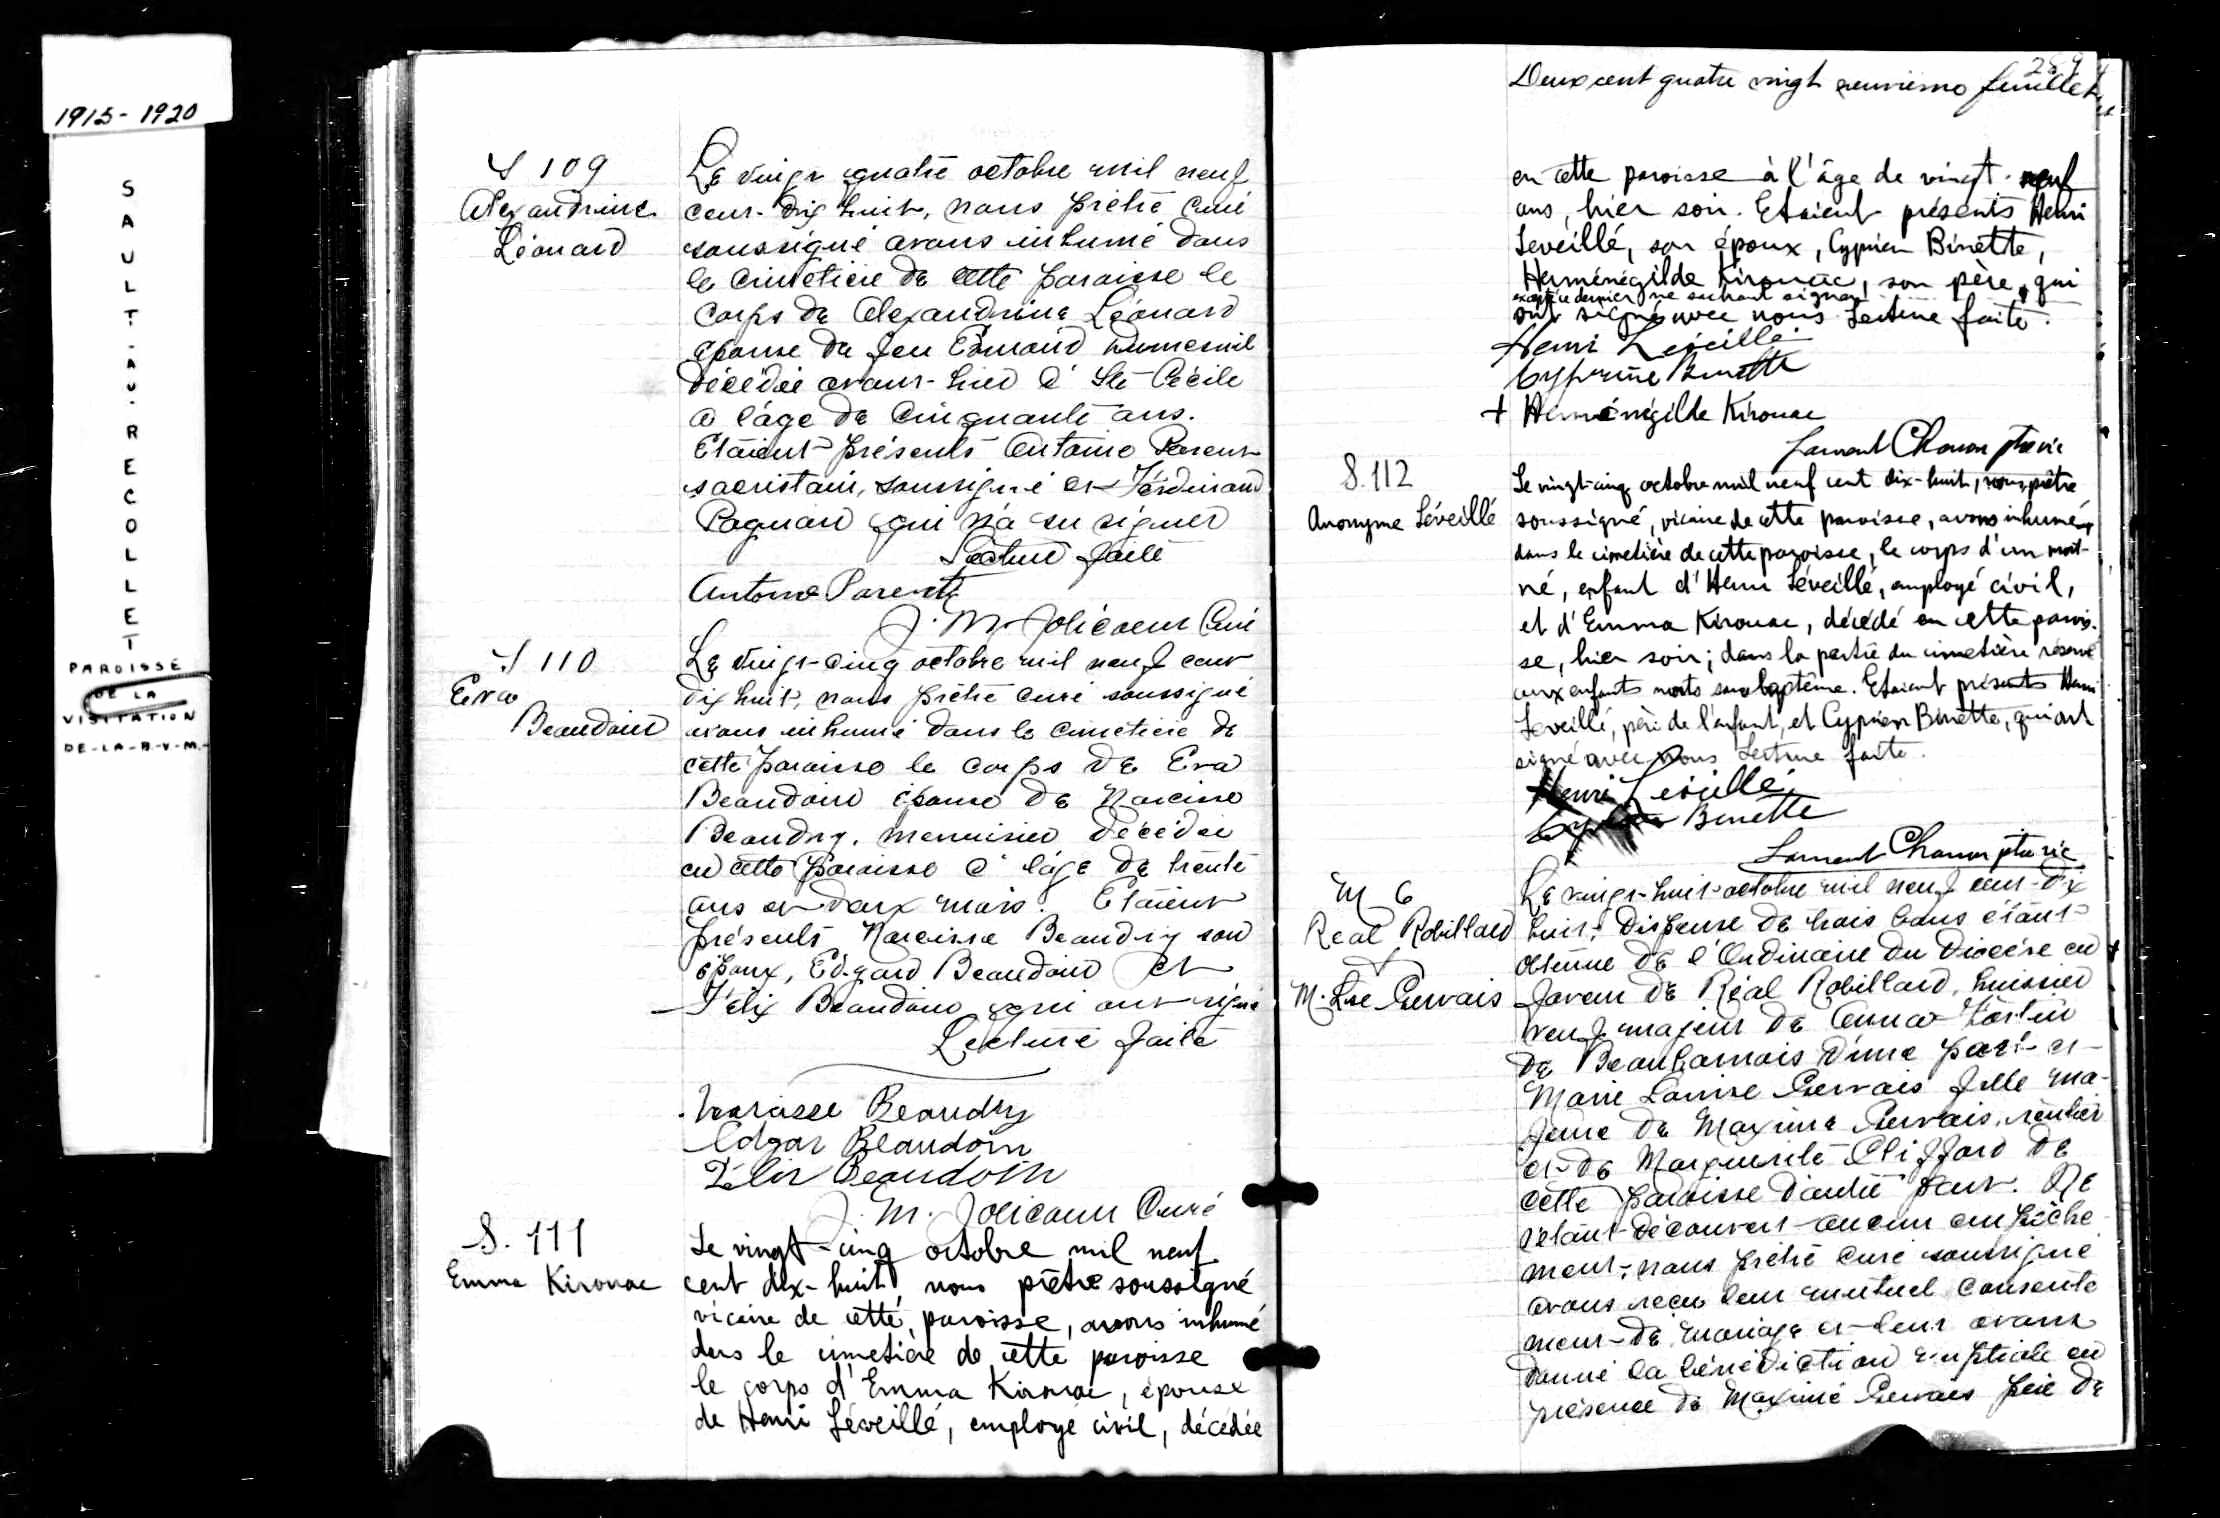 1915-1920
SAULT-AU-RECOLLET
PAROISSE
DE LA
VISITATION
DE-LA-B-V-M-
S 109
Alexandrine
Léonard
Le vingt quatre octobre mil neuf
cent-dix huit, nous prêtre curé
soussigné avons inhumé dans
le cimetière de cette paroisse le
corps de Alexandrine Léonard
épouse de feu Edmond Dumesnil
décédée avant-hier à Ste Cécile
à l'âge de cinquante ans.
Etaient présents Antoine Parent
sacristain, soussigné et Ferdinand
Paquin qui n'a su signer
Lecture faite
Antoine Parent
J. M. Jolicoeur Curé
S 110
Eva
Beaudoin
Le vingt-cinq octobre mil neuf cent
dix huit, nous prêtre curé soussigné
avons inhumé dans le cimetière de
cette paroisse le corps de Eva
Beaudoin épouse de Narcisse
Beaudry, menuisier décédée
en cette paroisse à l'âge de trente
ans et deux mois. Etaient
présents Narcisse Beaudry son
époux, Edgard Beaudoin et
Félix Beaudoin qui ont signé
Lecture faite
Narcisse Beaudry
Edgar Beaudoin
Félix Beaudoin
J. M. Jolicoeur Curé
S. 111
Emma Kirouac
Le vingt-cinq octobre mil neuf
cent dix-huit, nous prêtre soussigné
vicaire de cette paroisse, avons inhumé
dans le cimetière de cette paroisse
le corps d'Emma Kirouac, épouse
de Henri Léveillé, employé civil, décédée
289
Deux cent quatre vingt neuvième feuillet
en cette paroisse à l'âge de vingt-neuf
ans, hier soir. Etaient présents Henri
Léveillé, son époux, Cyprien Binette,
Herménégilde Kirouac, son père, qui
excepté ce dernier ne sachant signer
ont signé avec nous. Lecture faite.
Henri Léveillé
Cyprien Binette
+ Herménégilde Kirouac
Laurent Charron ptre vic
S. 112
Anonyme Léveillé
Le vingt-cinq octobre mil neuf cent dix-huit, nous, prêtre
soussigné, vicaire de cette paroisse, avons inhumé,
dans le cimetière de cette paroisse, le corps d'un mort-
né, enfant d'Henri Léveillé, employé civil,
et d'Emma Kirouac, décédé en cette parois-
se, hier soir; dans la partie du cimetière réservé
aux enfants morts sans baptême. Etaient présents Henri
Léveillé, père de l'enfant, et Cyprien Binette, qui ont
signé avec nous Lecture faite.
Henri Léveillé
Cyprien Binette
Laurent Charron ptre vic
M 6
Real Robillard
&
M. Lse Gervais
Le vingt-huit octobre mil neuf cent-dix
huit, Dispense de trois bans étant
obtenue de l'Ordinaire du Diocèse en
faveur de Réal Robillard, huissier
veuf majeur de Anna Fortin
de Beauharnois d'une part et
Marie Louise Gervais fille ma-
jeure de Maxime Gervais, rentier
et de Marguerite Clifford de
cette paroisse d'autre part. Ne
s'étant découvert aucun empêche-
ment, nous prêtre curé soussigné
avons reçu leur mutuel consente
ment de mariage et leur avons
donné la bénédiction nuptiale en
présence de Maxime Gervais père de